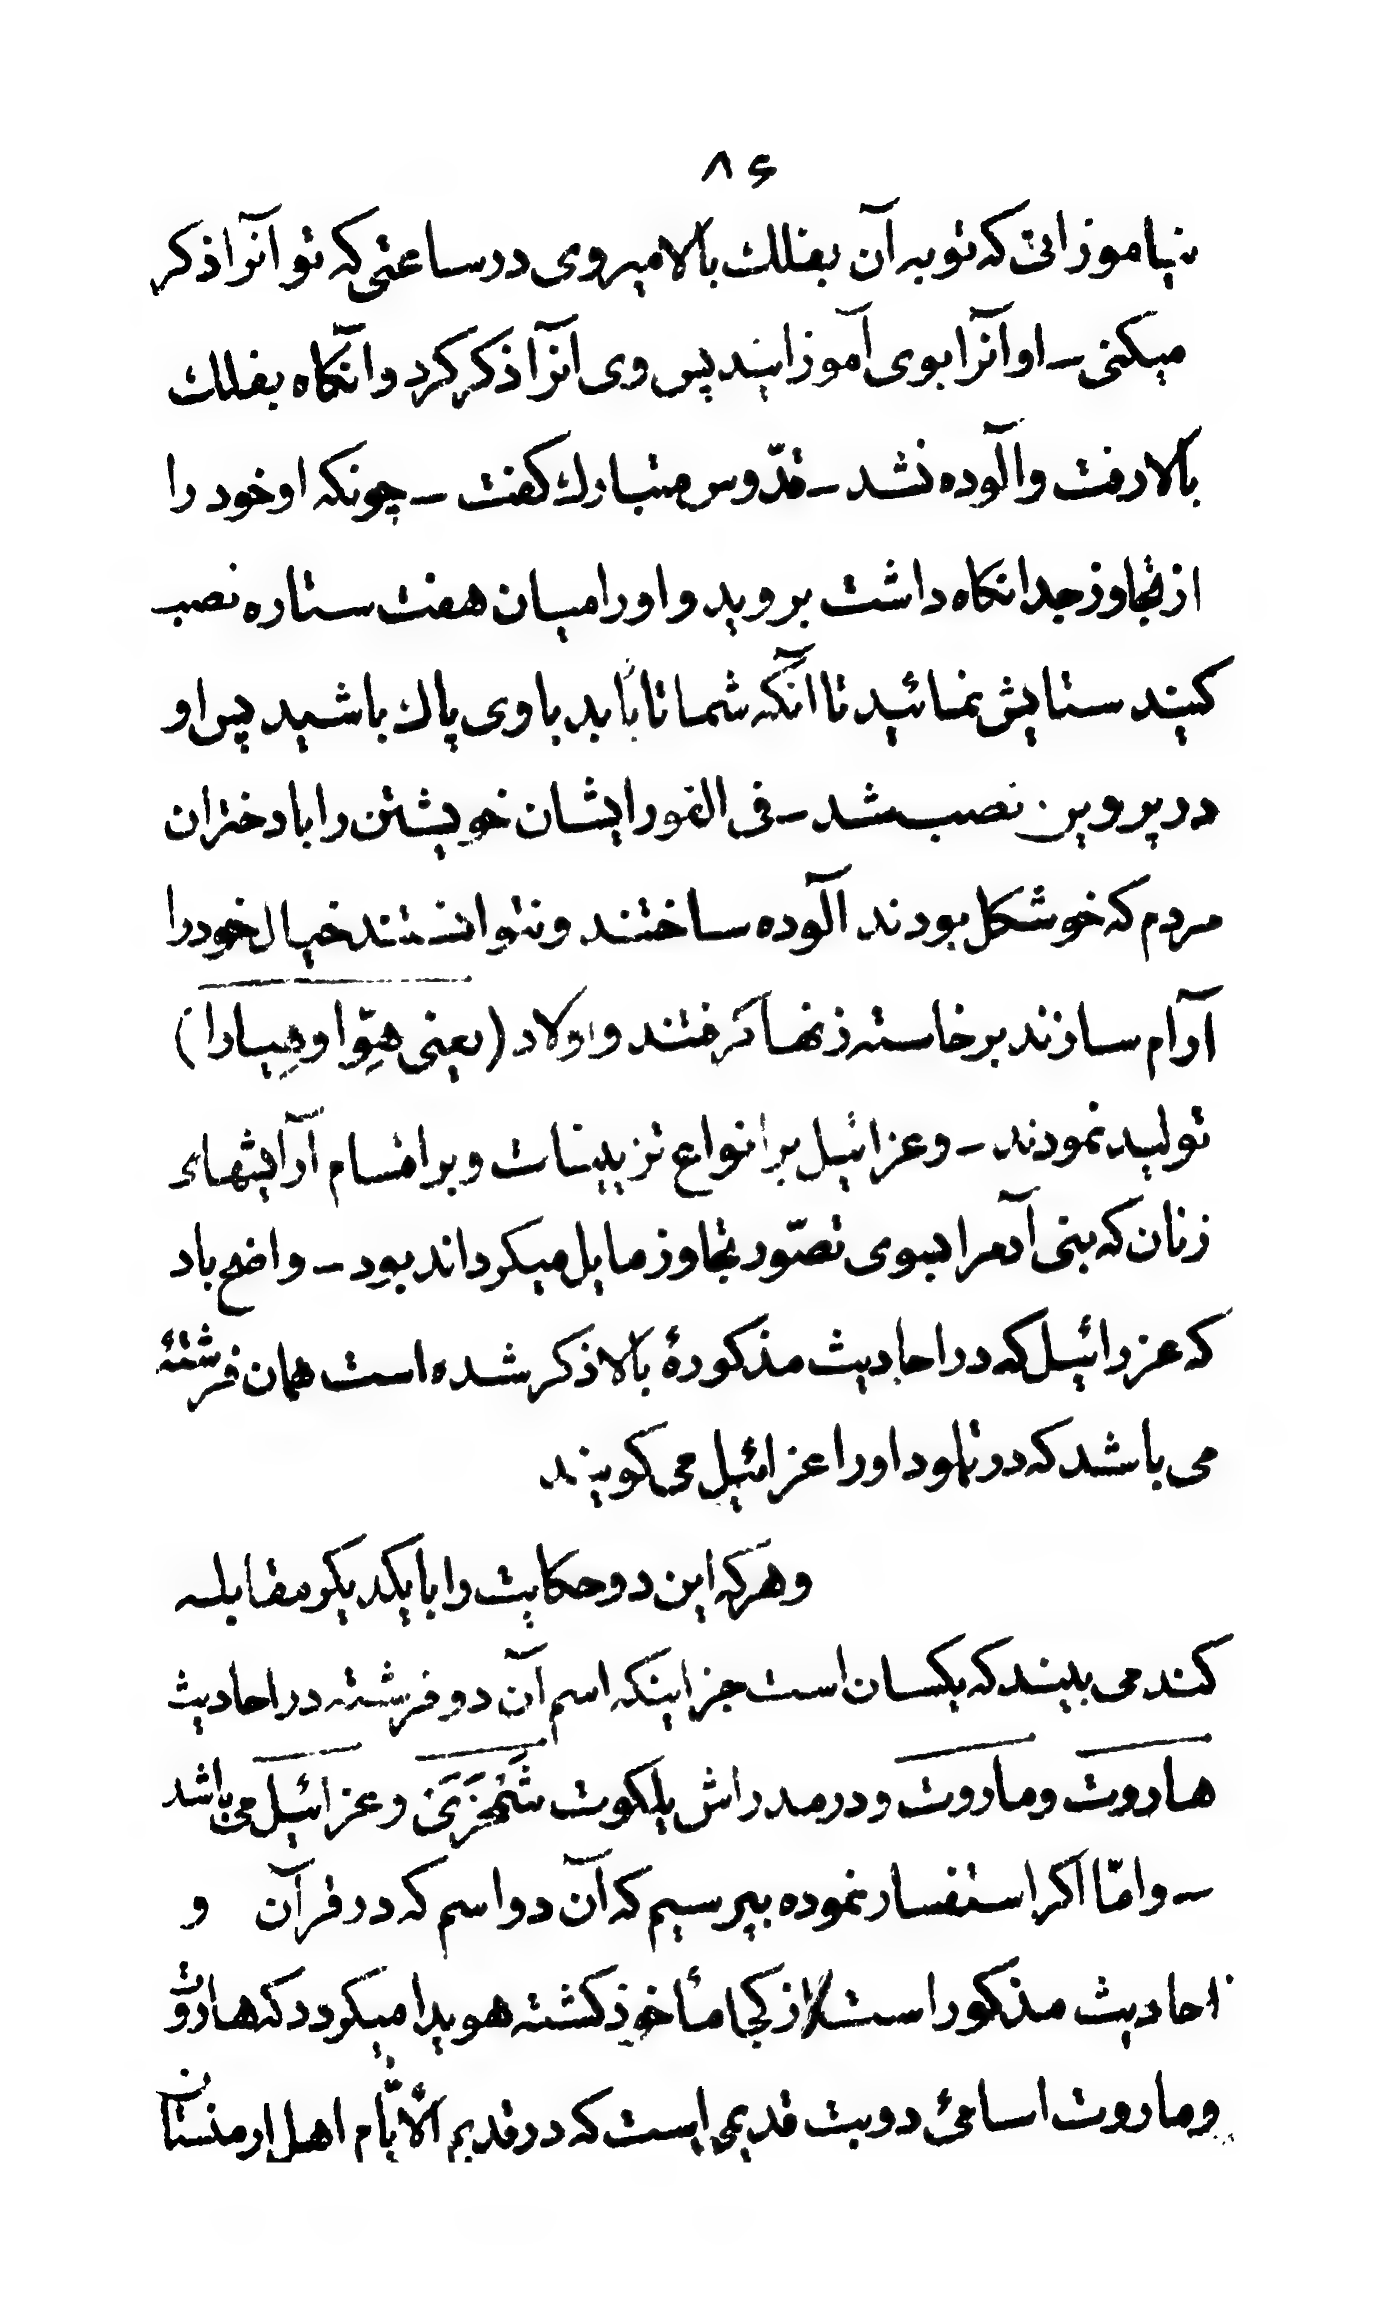 ۸۶
نیاموزانی که تو به آن بفلک بالا میروی در ساعتی که تو آنرا ذکر
میکنی ـ او آنرا بوی آموزانید پس وی آنرا ذکر کرد و آنگاه بفلک
بالا رفت و آلوده نشد ـ قدّوس متبارک گفت ـ چونکه او خود را
از تجاوز جدا نگاه داشت بروید و او را میان هفت ستاره نصب
کنید ستایش نمائید تا آنکه شما تا بابد با وی پاک باشید پس او
در پروین نصب شد ـ فی الفور ایشان خویشتن را با دختران
مردم که خوشکل بودند آلوده ساختند و نتوانستند خیال خود را
آرام سازند برخاسته زنها گرفتند و اولاد (یعنی هِوّا و هِیارا)
تولید نمودند ـ و عزائیل بر انواع تزیینات و بر اقسام آرایشهای
زنان که بنی آدمرا بسوی تصّور تجاوز مایل میگرداند بود ـ واضح باد
که عزرائیل که در احادیث مذکورهٔ بالا ذکر شده است همان فرشتهٔ
می باشد که در تلمود او را عزائیل می گویند
و هر که این دو حکایت را با یکدیگر مقابله
کند می بیند که یکسان است جز اینکه اسم آن دو فرشته در احادیث
هاروت و ماروت و در مدراش یلکوت شَمْحَزَیَ و عزائیل می باشد
ـ و امّا اگر استفسار نموده بپرسیم که آن دو اسم که در قرآن و
احادیث مذکور است از کجا مأخوذ گشته هویدا میگردد که هاروت
و ماروت اسامئ دو بت قدیمی است که در قدیم الأیّام اهل ارمنستان